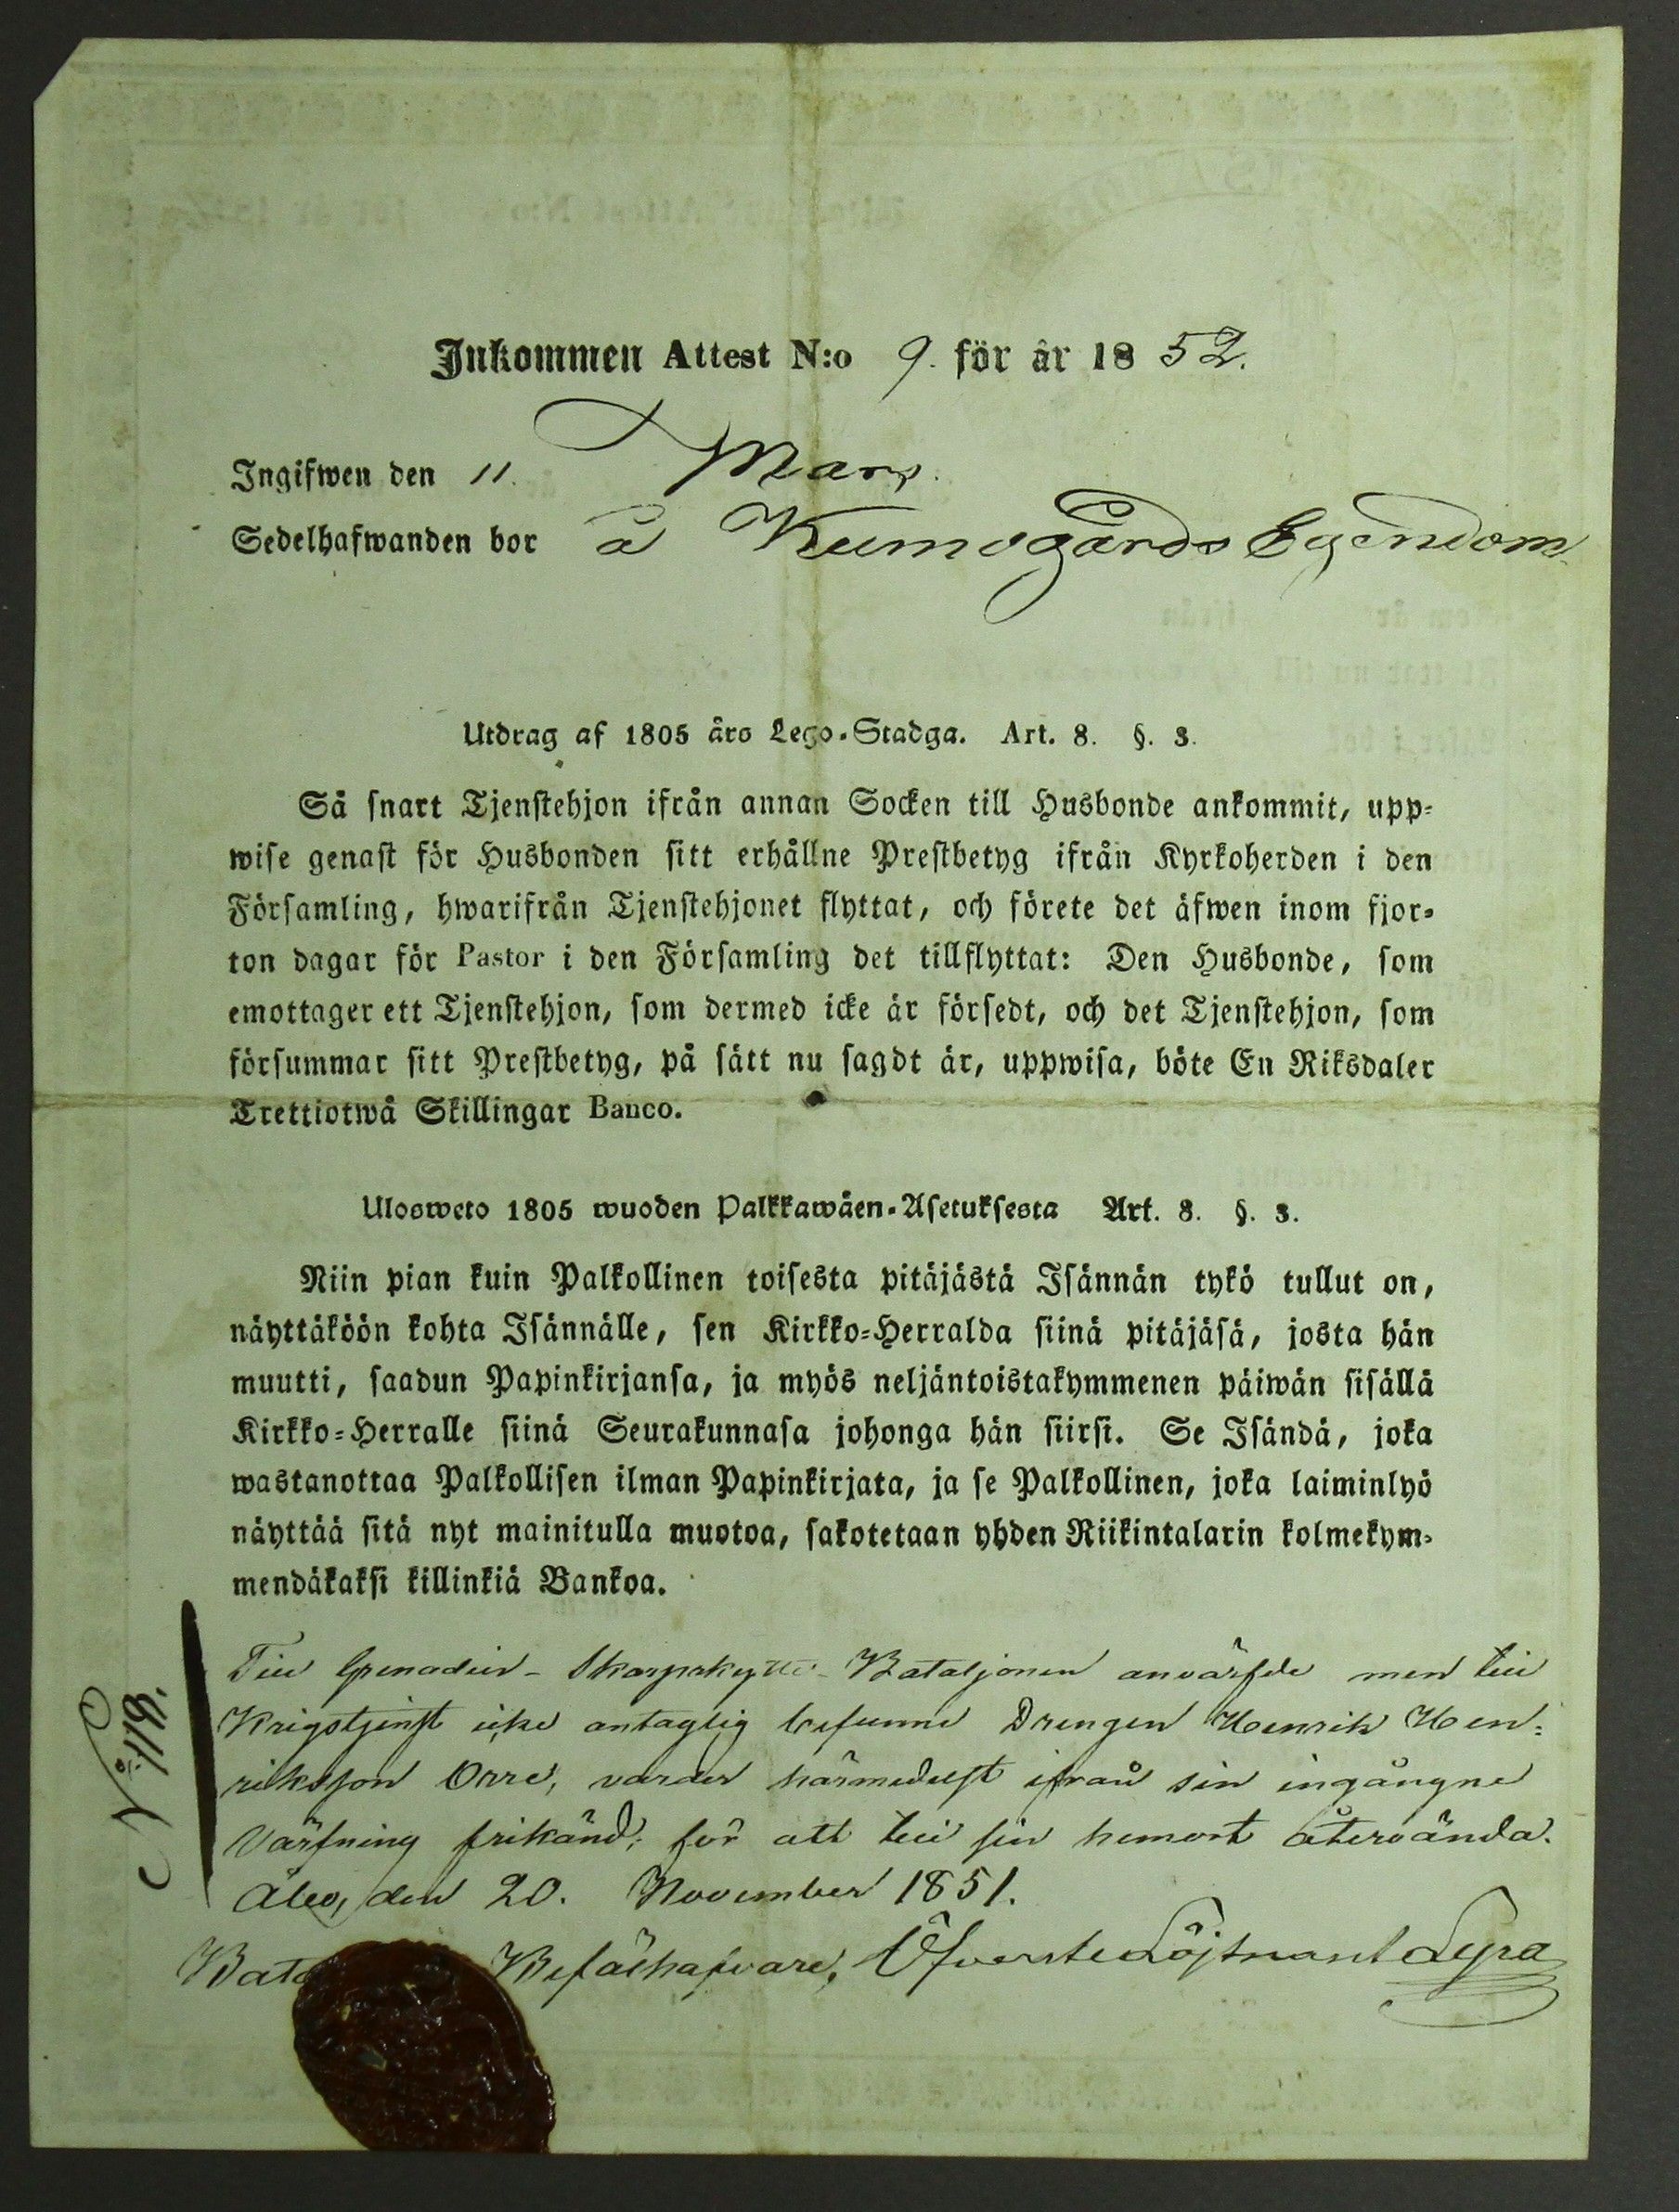 Inkommen Attest N:o 9. för år 18 52.
Ingifwen den 11. Mars.
Sedelhafwanden bor å Kumogårds Egendom.
Utdrag af 1805 års Lego-Stadga. Art. 8. §. 3.
Så snart Tjenstehjon ifrån annan Socken till Husbonde ankommit, upp-
wise genast för Husbonden sitt erhållne Prestbetyg ifrån Kyrkoherden i den
Församling, hwarifrån Tjenstehjonet flyttat, och förete det äfwen inom fjor-
ton dagar för Pastor i den Församling det tillflyttat: Den Husbonde, som
emottager ett Tjenstehjon, som dermed icke är försedt, och det Tjenstehjon, som
försummar sitt Prestbetyg, på sätt nu sagdt är, uppwisa, böte En Riksdaler
Trettiotwå Skillingar Banco.
Ulosweto 1805 wuoden Palkkawäen-Asetuksesta Art. 8. §. 3.
Niin pian kuin Palkollinen toisesta pitäjästä Isännän tykö tullut on,
näyttäköön kohta Isännälle, sen Kirkko-Herralda siinä pitäjäsä, josta hän
muutti, saadun Papinkirjansa, ja myös neljäntoistakymmenen päiwän sisällä
Kirkko-Herralle siinä Seurakunnasa johonga hän siirsi. Se Isändä, joka
wastanottaa Palkollisen ilman Papinkirjata, ja se Palkollinen, joka laiminlyö
näyttää sitä nyt mainitulla muotoa, sakotetaan yhden Riikintalarin kolmekym-
mendäkaksi killinkiä Bankoa.
Till Grenadier-Skarpskytte-Bataljonen anvärfde men till
Krigstjenst icke antaglig befunne Drengen Henrik Hen-
riksson Orre, varder härmedelst ifrån sin ingångne
Värfning frikänd, för att till sin hemort återvända.
Åbo, den 20. November 1851.
Befälhafvare, ÖfversteLöjtnant Lyra
No 118.